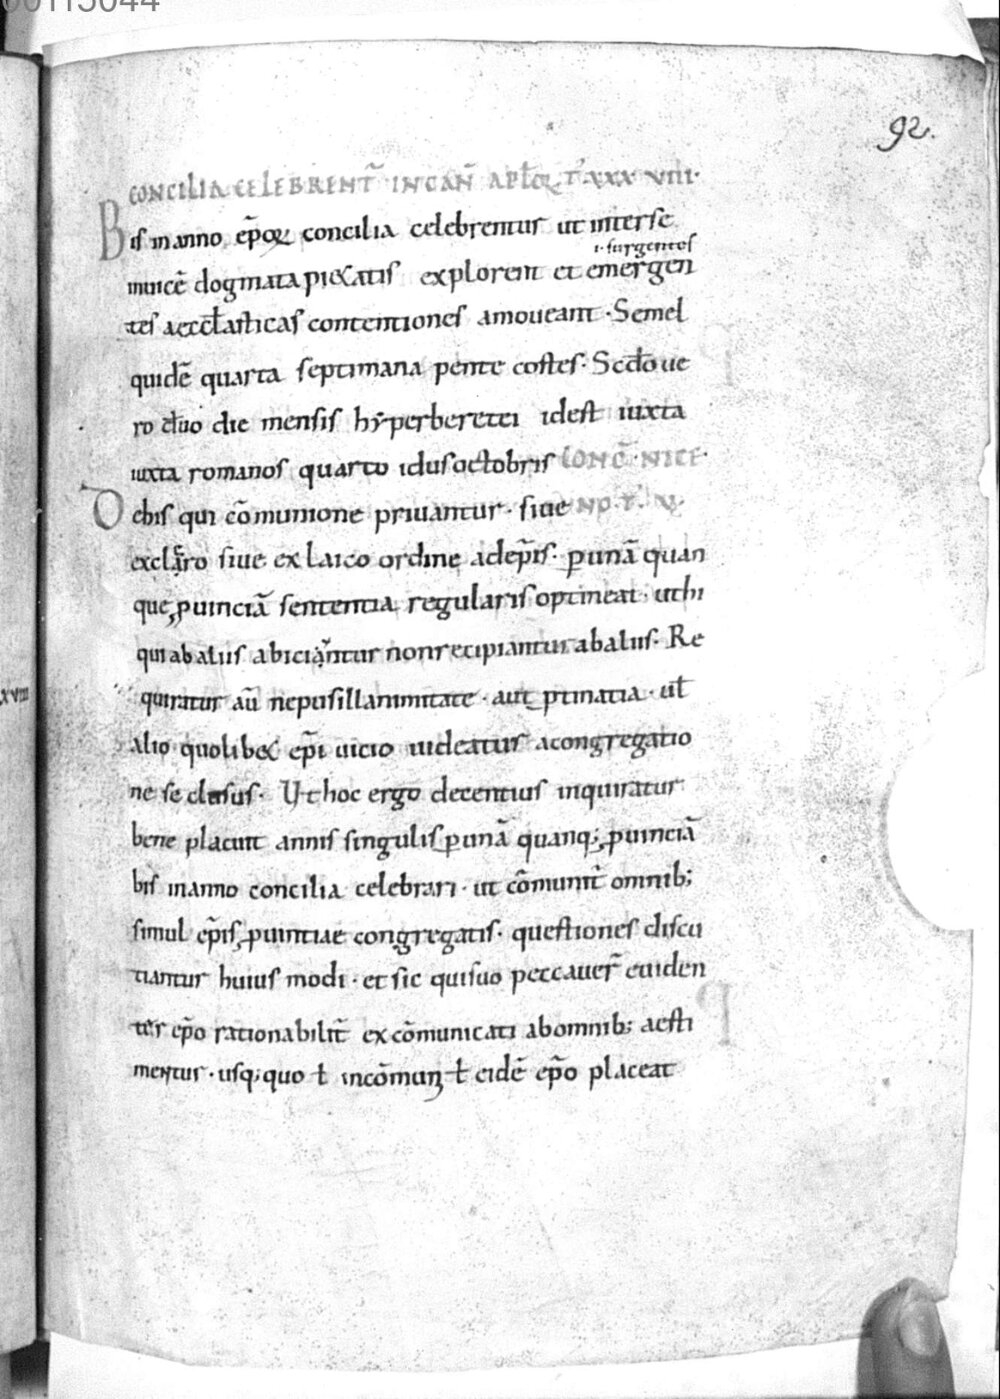 00115044
92.
CONCILIA CELEBRENT̃ IN CAÑ APL̃OꝜ T̃ XXXVIII·
Bis in anno ep̃oꝝ concilia celebrentur ut inter se
i· surgentes
inuicẽ dogmata pietatis explorent et emergen
tes aeccl̃asticas contentiones amoueant · Semel
quidẽ quarta septimana pentecostes · Sc̃do ue
ro duo die mensis hẏperberetei idest iuxta
iuxta romanos quarto idus octobris CONC̃ · NICE·
De his qui cõmunione priuantur · siue NO · T̃ · V·
ex cl̃ero siue ex laico ordine ad ep̃is · ꝑ unã quan
que ꝓuinciã sententia regularis optineat · ut hi
qui ab aliis abiciantur non recipiantur ab aliis · Re
quiratur aũ ne pusillanimitate · aut ꝑtinatia · ul̃
alio quolibet ep̃i uicio uideatur a congregatio
ne seclusus · Ut hoc ergo decentius inquiratur
bene placuit annis singulis ꝑ unã quanq; ꝓuinciã
bis in anno concilia celebrari · ut cõmunit̃ omnib;
simul ep̃is ꝓuintiae congregatis · questiones discu
tiantur huius modi · et sic qui suo peccauer̃ euiden
ter ep̃o rationabilit̃ excõmunicati ab omnib; aesti
mentur · usq; quo ł in cõmuni ł eidẽ ep̃o placeat
xviii